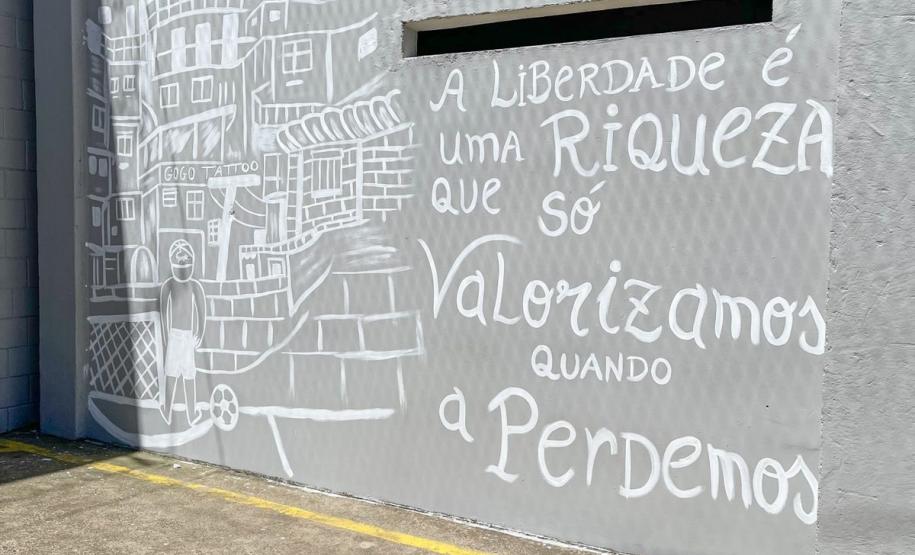 GOGO TATTOO
A LiBERDADE é
umA RiQUEZA
QUE SÓ
VaLorizamos
QUANDO
a PerDemos